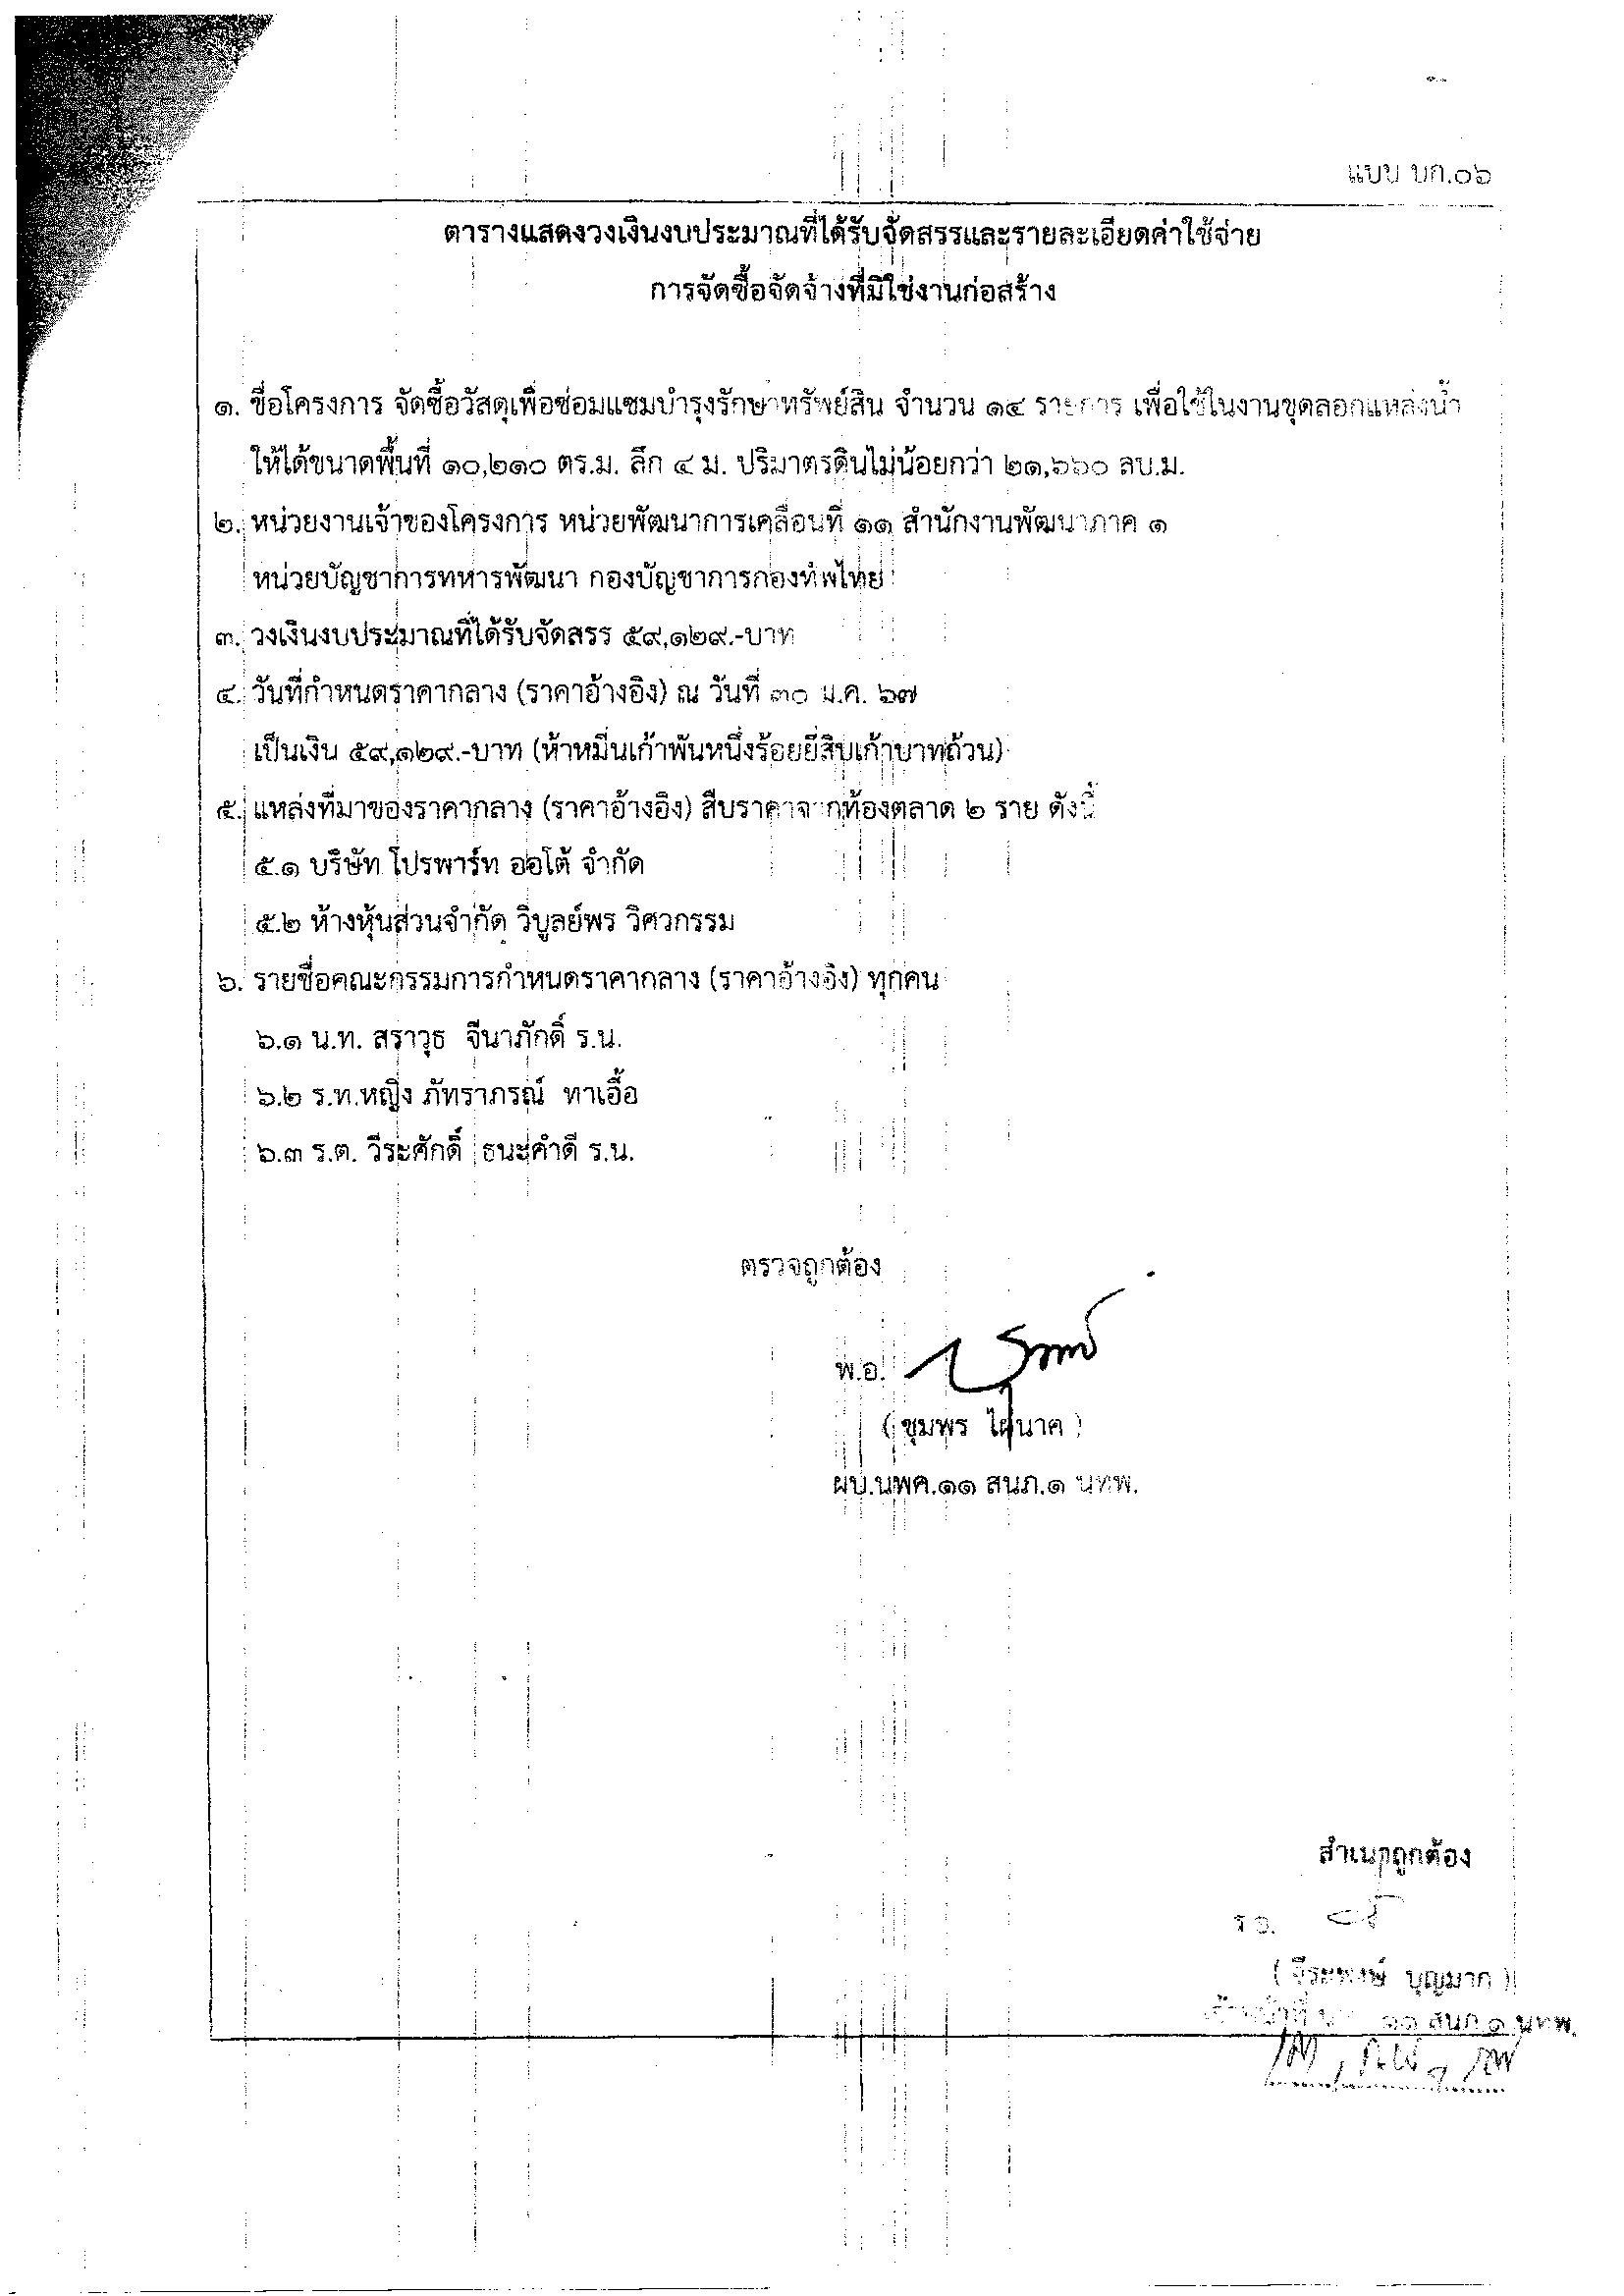 แบบ บก.๐๖
ตารางแสดงวงเงินงบประมาณที่ได้รับจัดสรรและรายละเอียดค่าใช้จ่าย
การจัดซื้อจัดจ้างที่มิใช่งานก่อสร้าง
๑. ชื่อโครงการ จัดซื้อวัสดุเพื่อซ่อมแซมบำรุงรักษาทรัพย์สิน จำนวน ๑๔ รายการ เพื่อใช้ในงานขุดลอกแหล่งน้ำ
ให้ได้ขนาดพื้นที่ ๑๐,๒๑๐ ตร.ม. ลึก ๔ ม. ปริมาตรดินไม่น้อยกว่า ๒๑,๖๖๐ ลบ.ม.
๒. หน่วยงานเจ้าของโครงการ หน่วยพัฒนาการเคลื่อนที่ ๑๑ สำนักงานพัฒนาภาค ๑
หน่วยบัญชาการทหารพัฒนา กองบัญชาการกองทัพไทย
๓. วงเงินงบประมาณที่ได้รับจัดสรร ๕๙,๑๒๙.-บาท
๔. วันที่กำหนดราคากลาง (ราคาอ้างอิง) ณ วันที่ ๓๐ ม.ค. ๖๗
เป็นเงิน ๕๙,๑๒๙.-บาท (ห้าหมื่นเก้าพันหนึ่งร้อยยี่สิบเก้าบาทถ้วน)
๕. แหล่งที่มาของราคากลาง (ราคาอ้างอิง) สืบราคาจากท้องตลาด ๒ ราย ดังนี้
๕.๑ บริษัท โปรพาร์ท ออโต้ จำกัด
๕.๒ ห้างหุ้นส่วนจำกัด วิบูลย์พร วิศวกรรม
๖. รายชื่อคณะกรรมการกำหนดราคากลาง (ราคาอ้างอิง) ทุกคน
๖.๑ น.ท. สราวุธ จีนาภักดิ์ ร.น.
๖.๒ ร.ท.หญิง ภัทราภรณ์ ทาเอื้อ
๖.๓ ร.ต. วีระศักดิ์ ธนะคำดี ร.น.
ตรวจถูกต้อง
พ.อ.
( ชุมพร ไผ่นาค )
ผบ.นพค.๑๑ สนภ.๑ นทพ.
สำเนาถูกต้อง
ร.อ.
( จีระพงษ์ บุญมาก )
๑๑ สนภ.๑ นทพ.